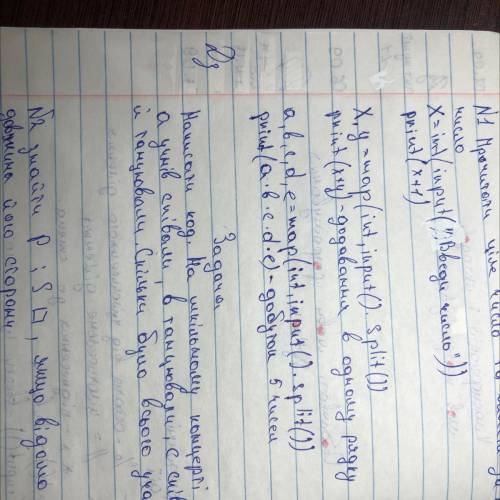 N1 Прочитати ціле число
число
X=int(input("Введи число"))
print(x+1)
X,y=map(int,input().split())
print(x+y)-додавання в одному рядку
a,b,c,d,e=map(int,input().split())
print(a·b·c·d·e)-добуток 5 чисел
Дз
Задачі
Написати код. На шкільному концерті
a учнів співали, b танцювали, c спів
й танцювали. Скільки було всього уча
N2 Знайти P і S □, якщо відомо
довжина його сторони.